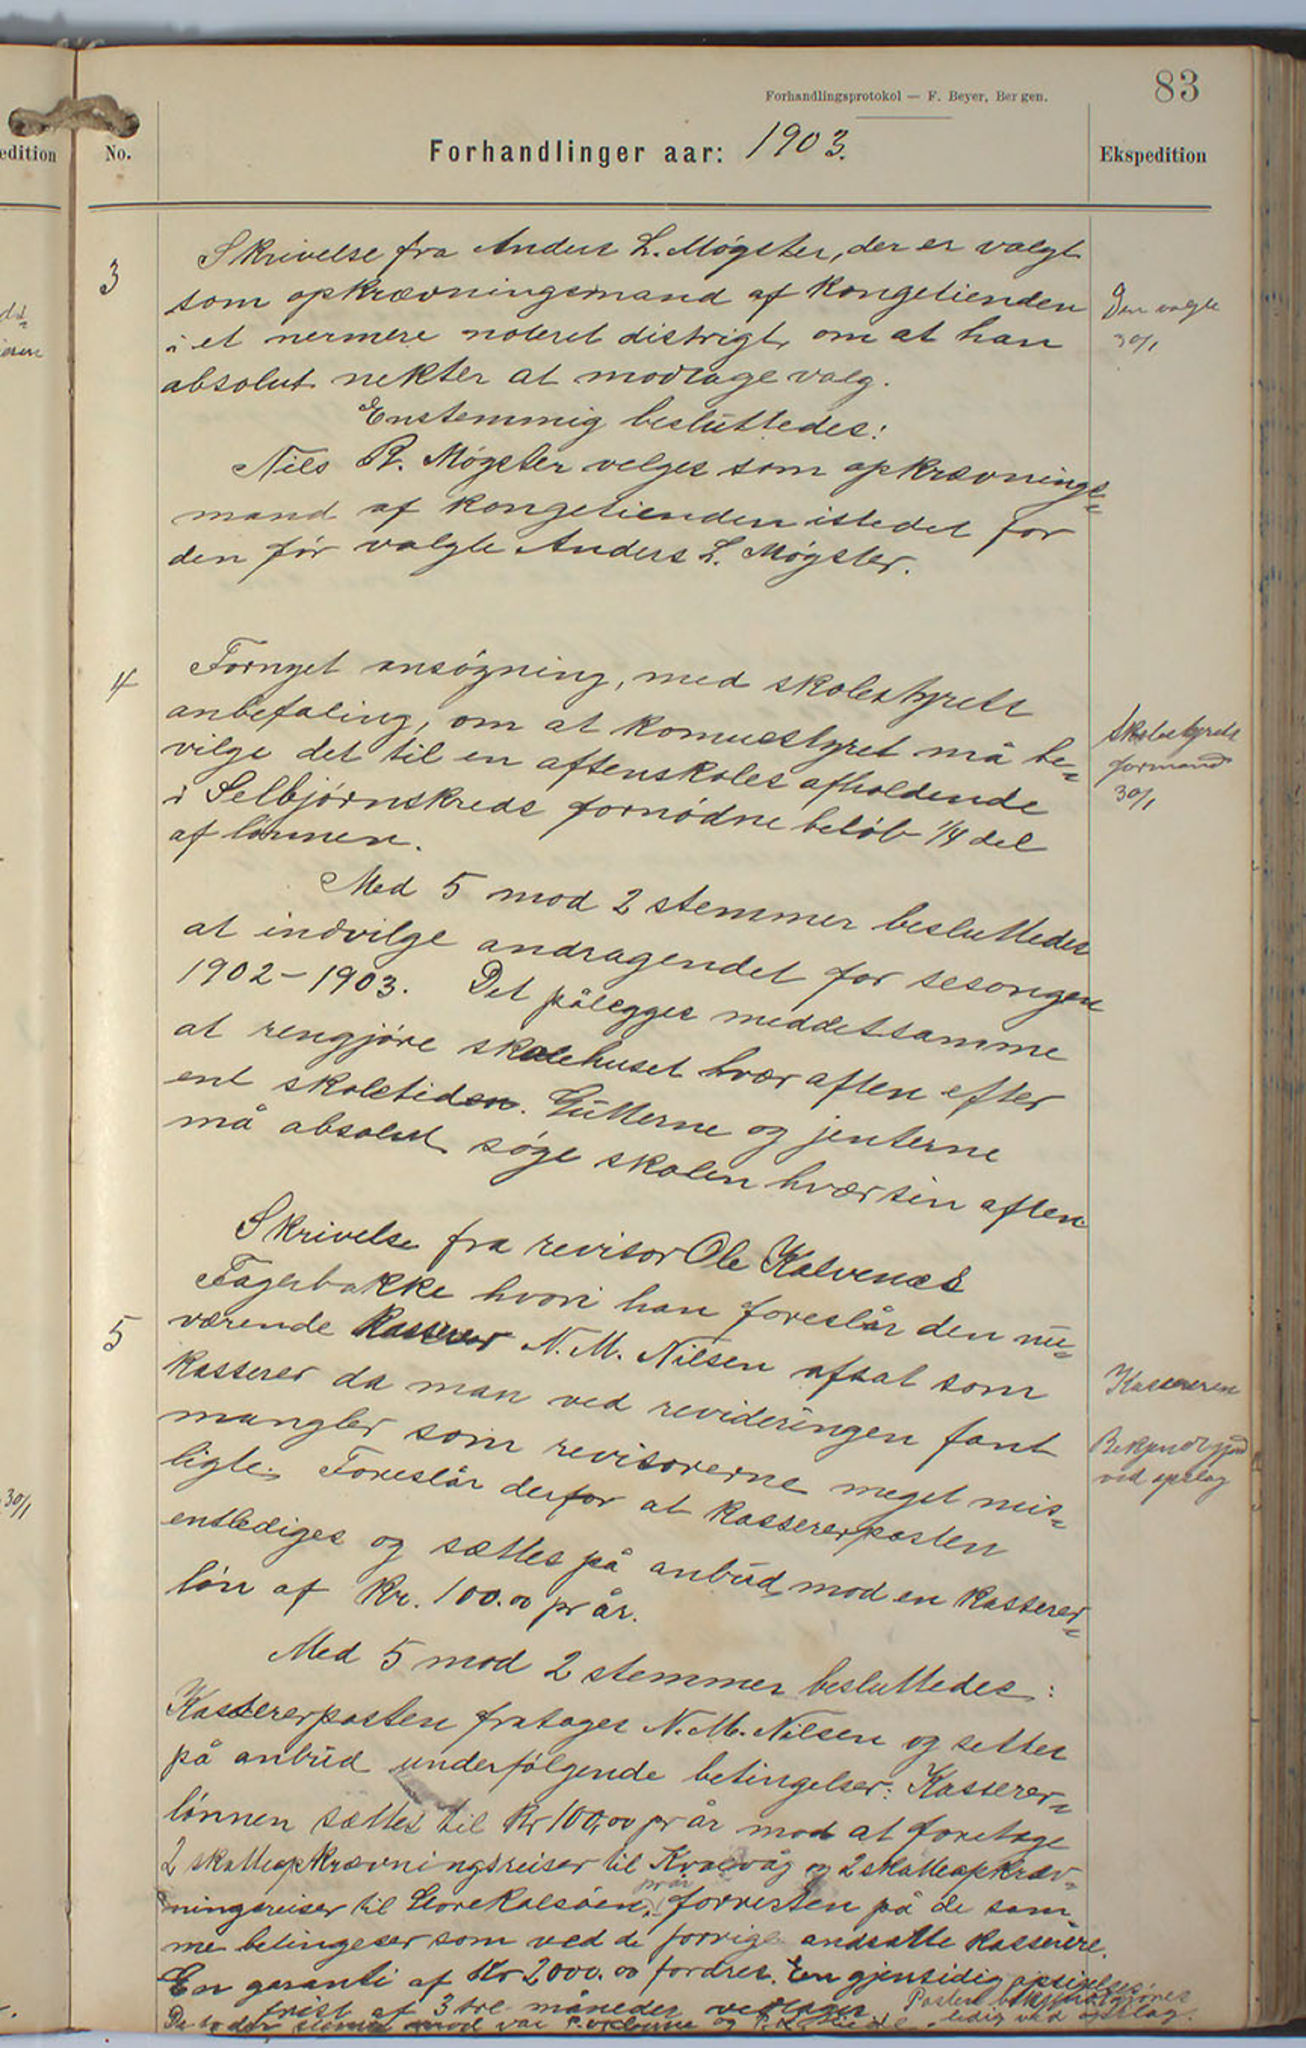 83
Forhandlingsprotokol — F. Beyer, Bergen.
edition
No.
Forhandlinger aar: 1903.
Ekspedition
3
Skrivelse fra Anders L. Møgster, der er valgt
som opkrævningsmand af Kongetienden
i et nermere noteret distrigt, om at han
absolut nekter at modtage valg.
Den valgte
30/1
Enstemmig besluttedes:
Nils R. Møgster velges som opkrævnings-
mand af kongetienden istedet for
den før valgte Anders L. Møgster.
4
Fornyet ansøgning, med skolestyrets
anbefaling, om at komnestyret må be-
vilge det til en aftenskoles afholdende
i Selbjørnskreds fornødne beløb 1/4 del
af lønnen.
Skolestyrets
formand
30/1
Med 5 mod 2 stemmer besluttedes
at indvilge andragendet for sesongen
1902-1903. Det pålegges meddetsamme
at rengjøre skolehuset hver aften efter
ent skoletiden. Gutterne og jenterne
må absolut søge skolen hver sin aften
5
Skrivelse fra revisor Ole Kalvenæs
Fagerbakke hvori han foreslår den nu-
værende Kasserer N. M. Nilsen afsat som
kasserer da man ved revideringen fant
mangler som revisorerne meget mis-
ligte. Foreslår derfor at kassererposten
entlediges og sættes på anbud mod en kasserer-
løn af Kr. 100.00 pr år.
Kassereren
Bekjendtgjord
ved opslag
30/1
Med 5 mod 2 stemmer besluttedes:
Kassererposten fratages N. M. Nilsen og settes
på anbud under følgende betingelser: Kasserer-
lønnen sættes til Kr 100,00 pr år mod at foretage
2 skatteopkrævningsreiser til Kvalvåg og 2 skatteopkræv-
ningsreiser til Store Kalsøen, pr år forresten på de sam-
me betingeser som ved de forrige andsatte kasserere.
En garanti af Kr 2000.00 fordres. En gjensidig opsigelses-
frist af 3 tre måneder vedtages. Posten bekjendtgjøres
ledig ved opslag.
De to der stemte mod var